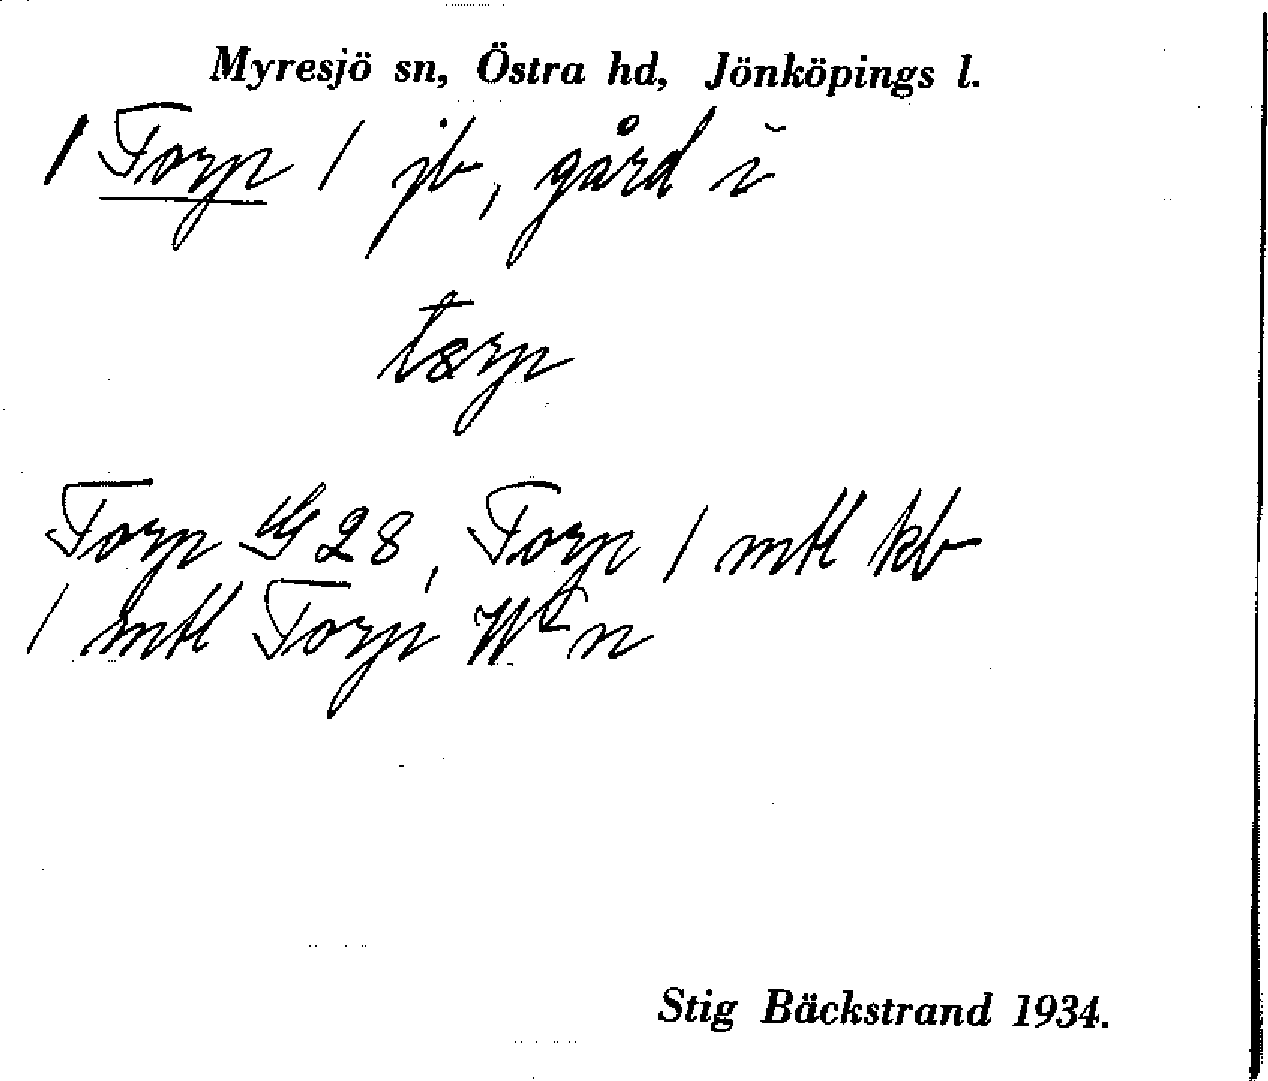 Myresjö sn, Östra hd, Jönköpings l.
1 Torp 1 jb, gård i
tɷrp
Torp G 28, Torp 1 mtl kb
1 mtl Torp
Stig Bäckstrand 1934.